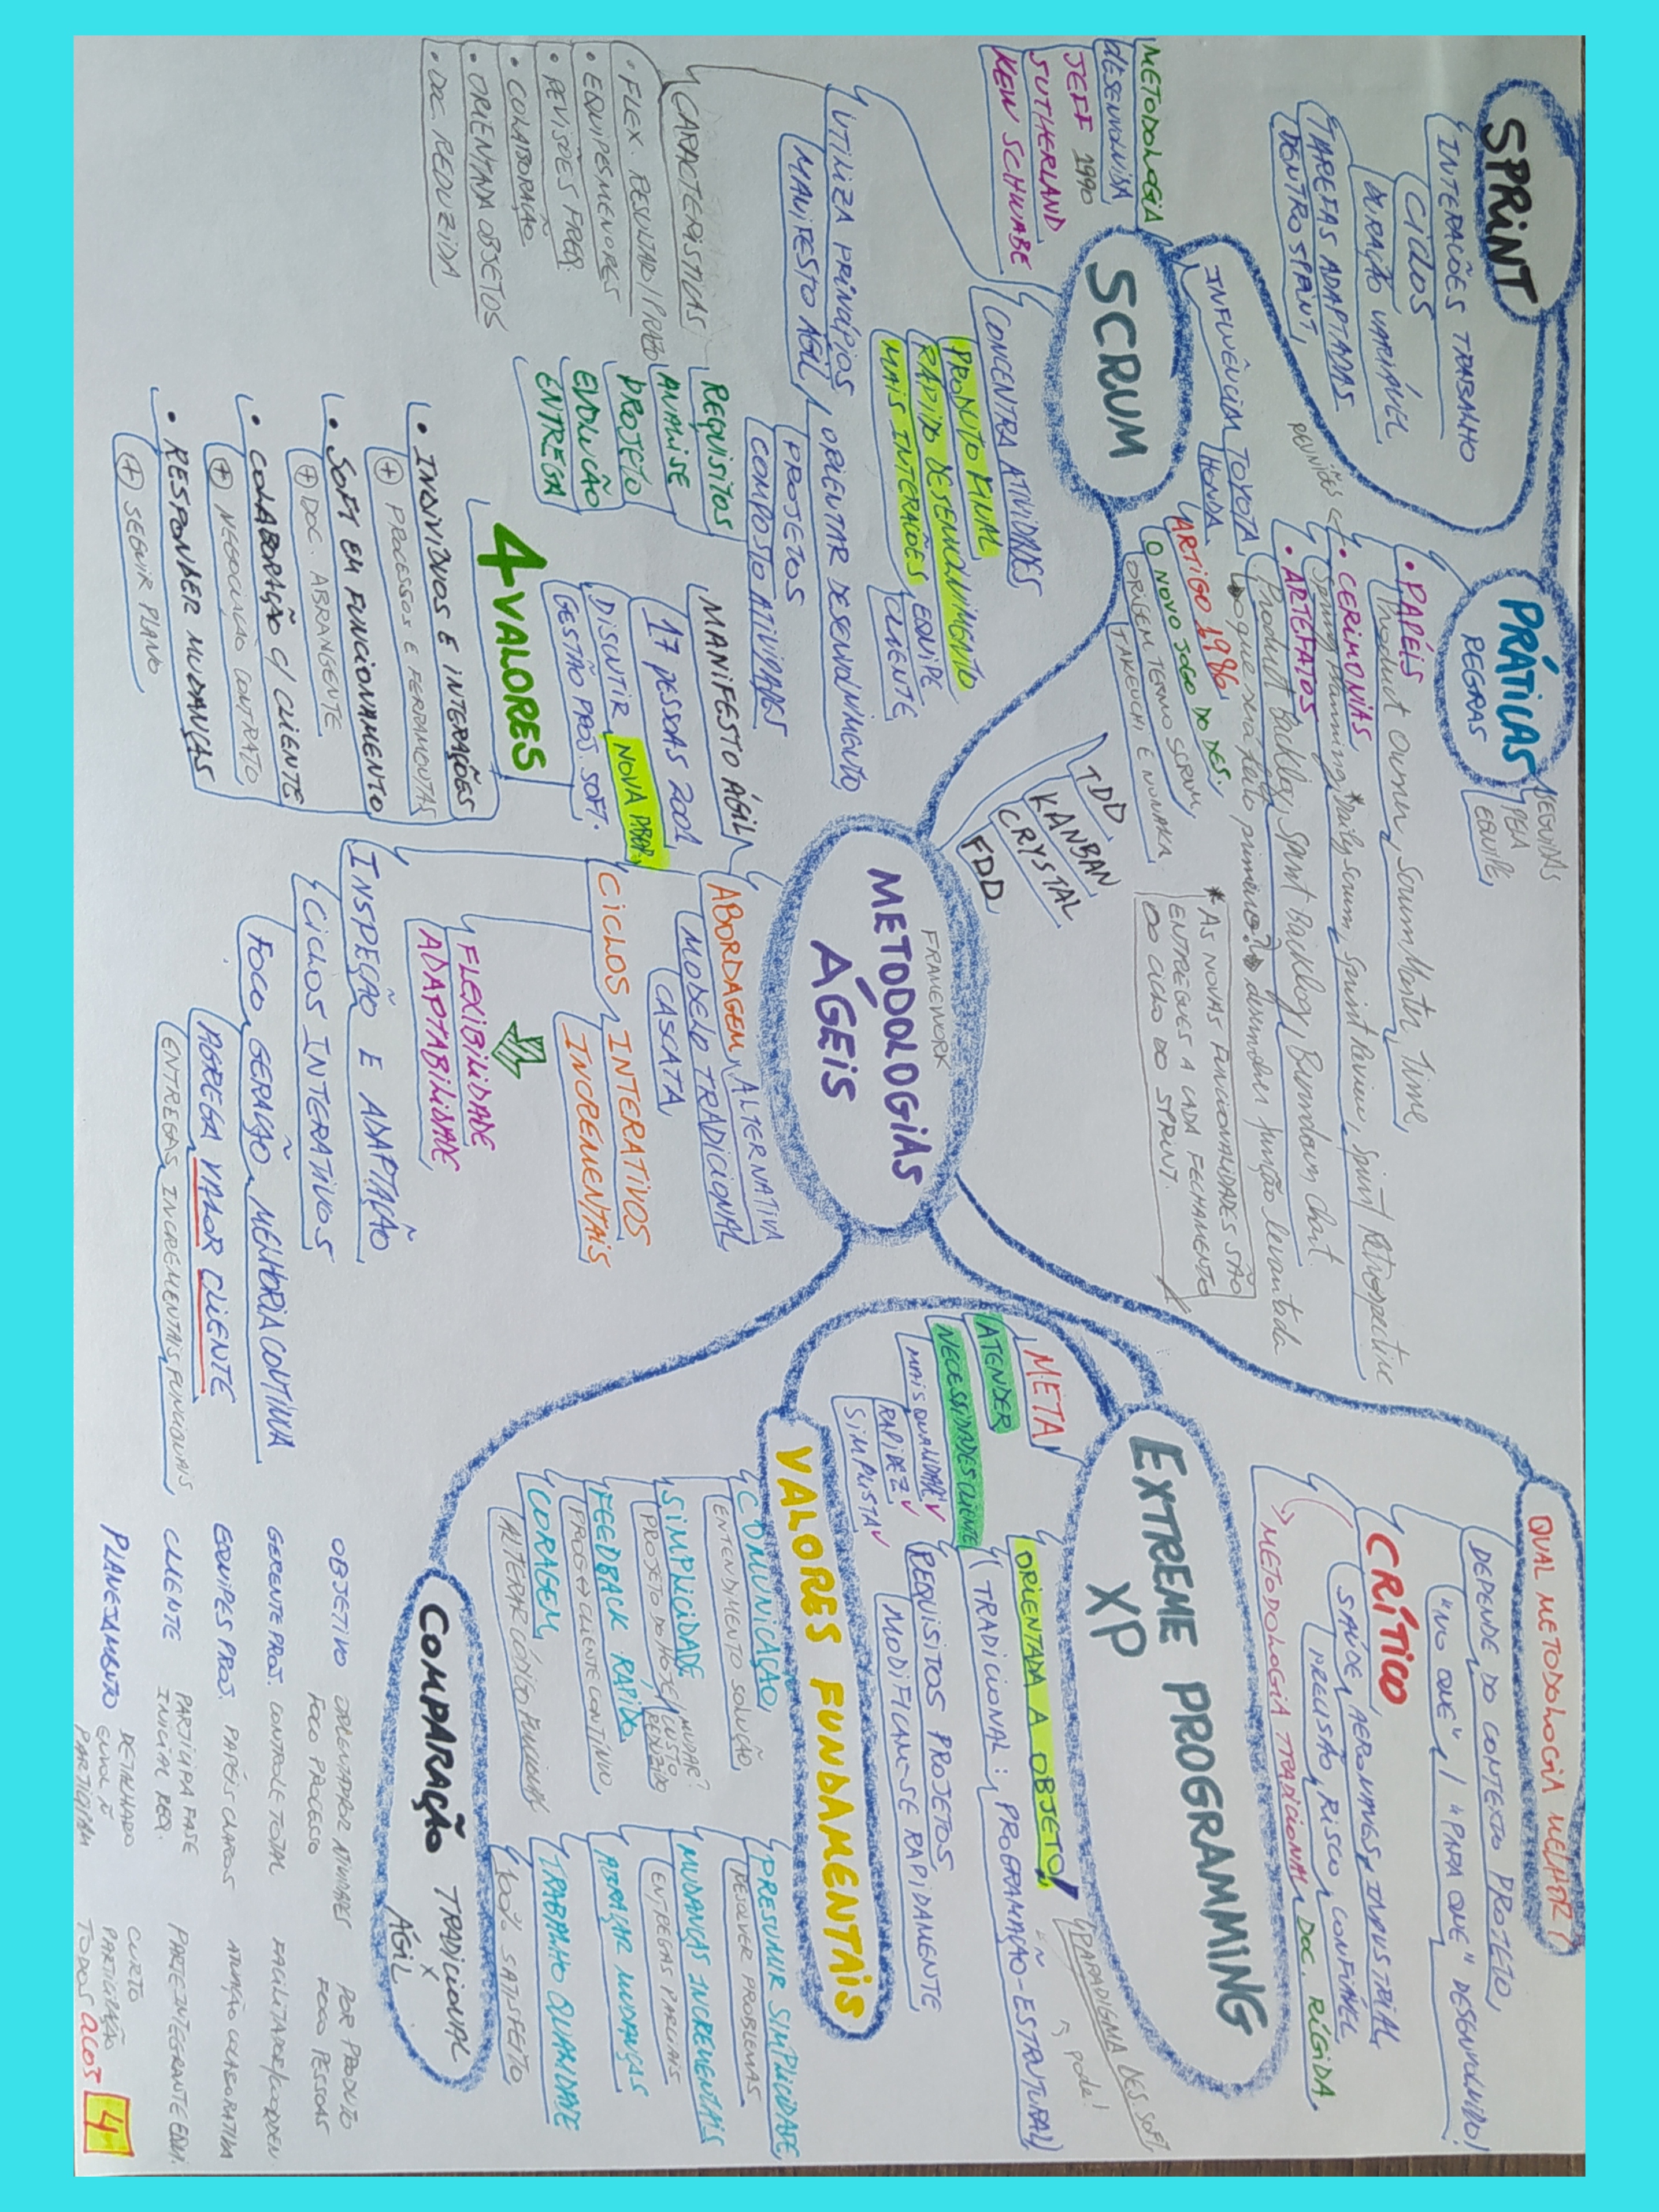 SPRINT
INTERAÇÕES TRABALHO
CICLOS
DURAÇÃO VARIÁVEL
TAREFAS ADAPTADAS
DENTRO SPRINT
PRÁTICAS
REGRAS
SEGUIDAS
PELA
EQUIPE
• PAPÉIS
Product Owner, Scrum Master, Time
REUNIÕES
• CERIMONIAS
Spring Planning, *Daily Scrum, Sprint Review, Sprint Retrospective
• ARTEFATOS
Product Backlog, Sprint Backlog, Burndown Chart
o que será feito primeiro? desenvolver função levantada
* AS NOVAS FUNCIONALIDADES SÃO
ENTREGUES A CADA FECHAMENTO
DO CICLO DO SPRINT.
INFLUÊNCIA TOYOTA
HONDA
ARTIGO 1986
O NOVO JOGO DO DES.
ORIGEM TERMO SCRUM
TAKEUCHI E NONAKA
SCRUM
METODOLOGIA
DESENVOLVIDA
JEFF 1990
SUTHERLAND
KEW SCHWABE
CONCENTRA ATIVIDADES
PRODUTO FINAL
RÁPIDO DESENVOLVIMENTO
MAIS INTERAÇÕES
EQUIPE
CLIENTE
UTILIZA PRINCÍPIOS
MANIFESTO ÁGIL
ORIENTAR DESENVOLVIMENTO
PROJETOS
COMPOSTO ATIVIDADES
REQUISITOS
ANÁLISE
PROJETO
EVOLUÇÃO
ENTREGA
CARACTERÍSTICAS
• FLEX. RESULTADO/PRAZO
• EQUIPES MENORES
• REVISÕES FREQ.
• COLABORAÇÃO
• ORIENTADA OBJETOS
• DOC. REDUZIDA
TDD
KANBAN
CRYSTAL
FDD
FRAMEWORK
METODOLOGIAS
ÁGEIS
MANIFESTO ÁGIL
17 PESSOAS 2001
DISCUTIR NOVA ABOR.
GESTÃO PROJ. SOFT.
4 VALORES
• INDIVÍDUOS E INTERAÇÕES
+ PROCESSOS E FERRAMENTAS
• SOFT EM FUNCIONAMENTO
+ DOC. ABRANGENTE
• COLABORAÇÃO C/ CLIENTE
+ NEGOCIAÇÃO CONTRATO
• RESPONDER MUDANÇAS
+ SEGUIR PLANO
ABORDAGEM ALTERNATIVA
MODELO TRADICIONAL
CASCATA
CICLOS INTERATIVOS
INCREMENTAIS
FLEXIBILIDADE
ADAPTABILIDADE
INSPEÇÃO E ADAPTAÇÃO
CICLOS INTERATIVOS
FOCO GERAÇÃO MELHORIA CONTÍNUA
AGREGA VALOR CLIENTE
ENTREGAS INCREMENTAIS FUNCIONAIS
QUAL METODOLOGIA MELHOR?
DEPENDE DO CONTEXTO PROJETO
"NO QUE" / "PARA QUE" DESENVOLVIDO!
CRÍTICO
SAÚDE, AERONAVES, INDUSTRIAL
PRECISÃO, RISCO, CONFIÁVEL
METODOLOGIA TRADICIONAL DOC. RÍGIDA
EXTREME PROGRAMMING
XP
META
ATENDER
NECESSIDADES CLIENTE
MAIS QUALIDADE ✓
RAPIDEZ ✓
SIMPLISTA ✓
PARADIGMA DES. SOFT
pode!
ORIENTADA A OBJETO!
(TRADICIONAL: PROGRAMAÇÃO-ESTRUTURAL)
REQUISITOS PROJETOS
MODIFICAM-SE RAPIDAMENTE
VALORES FUNDAMENTAIS
COMUNICAÇÃO
ENTENDIMENTO SOLUÇÃO
SIMPLICIDADE
PROJETO DO HOJE/ MUDAR?
CUSTO
REDUZIDO
FEEDBACK RÁPIDO
PROG ↔ CLIENTE CONTÍNUO
CORAGEM
ALTERAR CÓDIGO FUNCIONAL
PRESUMIR SIMPLICIDADE
RESOLVER PROBLEMAS
MUDANÇAS INCREMENTAIS
ENTREGAS PARCIAIS
ABRAÇAR MUDANÇAS
TRABALHO QUALIDADE
100% SATISFEITO
COMPARAÇÃO TRADICIONAL
X
ÁGIL
OBJETIVO ORIENTADA POR ATIVIDADES POR PRODUTO
FOCO PROCESSO FOCO PESSOAS
GERENTE PROJ. CONTROLE TOTAL FACILITADOR/COORDEN
EQUIPES PROJ. PAPÉIS CLAROS ATUAÇÃO COLABORATIVA
CLIENTE PARTICIPA FASE
INICIAL REQ. PARTE INTEGRANTE
PLANEJAMENTO DETALHADO CURTO
ENVOL Ñ PARTICIPAÇÃO
PARTICIPAM TODOS
4